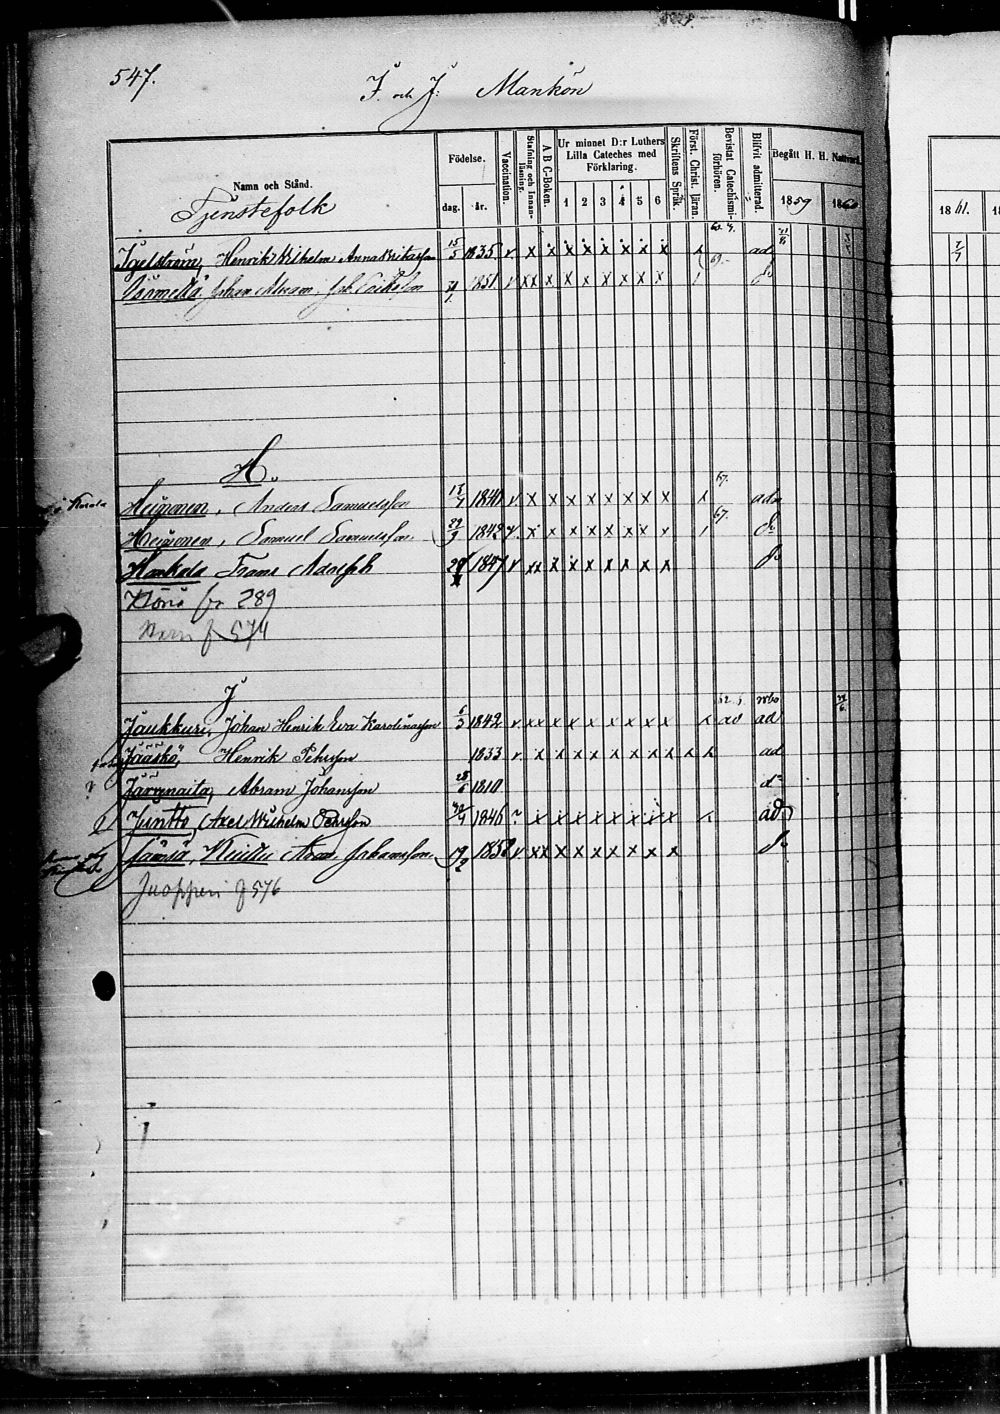 547.
I. och J: Mankön
Namn och Stånd.
Tjenstefolk
Födelse.
dag. år.
Vaccination.
Stafning och Innanläsning.
A B C-Boken.
Ur minnet D:r Luthers Lilla Cateches med Förklaring.
1 2 3 4 5 6
Skriftens Språk.
Först. Christ. läran.
Bevistat Catechismiförhören.
Blifvit admitterad.
Begått H. H. Nattvard.
1859 1860
1861.
Igelström, Henrik Wilhelm Anna Britasson 15/5 1835 v x x x x x x x x ad
Johan Abram 1851 v xx x x x x x x x
H.
67.
Heinonen, Anders Samuelsson 1840 v x x x x x x x x adm
67.
Heinonen, Samuel Samuelsson 29/9 1842 v. x x x x x x x x do
Hankala Frans Adolph 1847 v xx x x x x x x x do
289
574
J
Jaukkuri, Johan Henrik Eva Karolinasson 6/3 1842 v xx x x x x x x x x ad ad
Jääskö, Henrik Pehrsson 1833 v. x x x x x x x x x x ad
Abram Johansson 1810 do
Juntto, Axel Wilhelm Pehrsson 1846 ? x x x x x x x x ad
Johansson 19/2 1852 v xx x x x x x x x do
Juopperi f 576